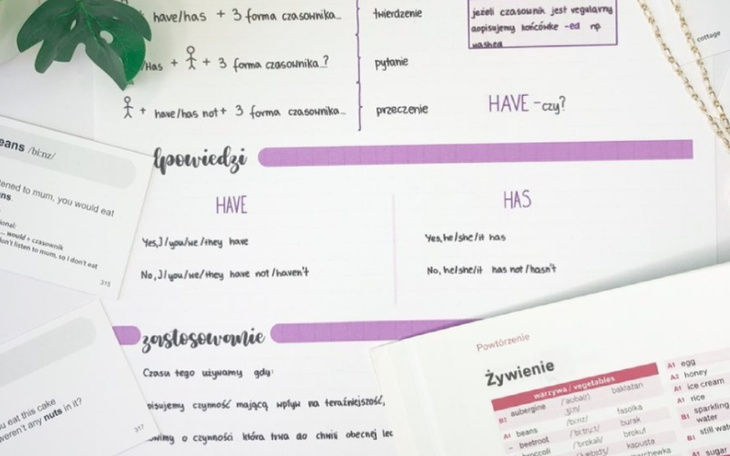 have/has + 3 forma czasownika...
twierdzenie
jeżeli czasownik jest regularny
dopisujemy końcówkę -ed np
washed
cottage
Has + + 3 forma czasownika..?
pytanie
+ have/has not + 3 forma czasownika...
przeczenie
HAVE - czy?
eans /biːnz/
tened to mum, you would eat
ns
onal:
... would + czasownik
don't listen to mum, so I don't eat
315
powiedzi
HAVE
HAS
Yes, I/you/we/they have
Yes, he/she/it has
No, I/you/we/they have not/haven't
No, he/she/it has not/hasn't
zastosowanie
Czasu tego używamy gdy:
pisujemy czynność mającą wpływ na teraźniejszość,
wimy o czynności która trwa do chwili obecnej
u eat this cake
weren't any nuts in it?
317
Powtórzenie
Żywienie
warzywa / vegetables
B2 aubergine
bakłażan
A1 beans /biːnz/ fasolka
– beetroot burak
broccoli brokuł
kapusta
A1 egg
A2 honey
A1 ice cream
A1 rice
B1 sparkling
water
B1 still wat
A1 sugar